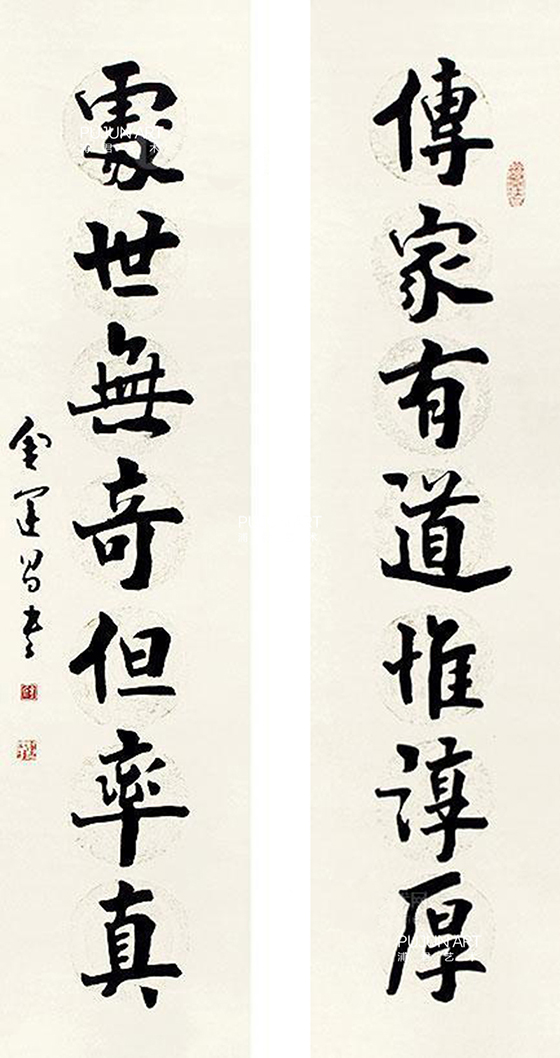 傳家有道惟諄厚
處世無奇但率真
金運昌書
PUJUN ART